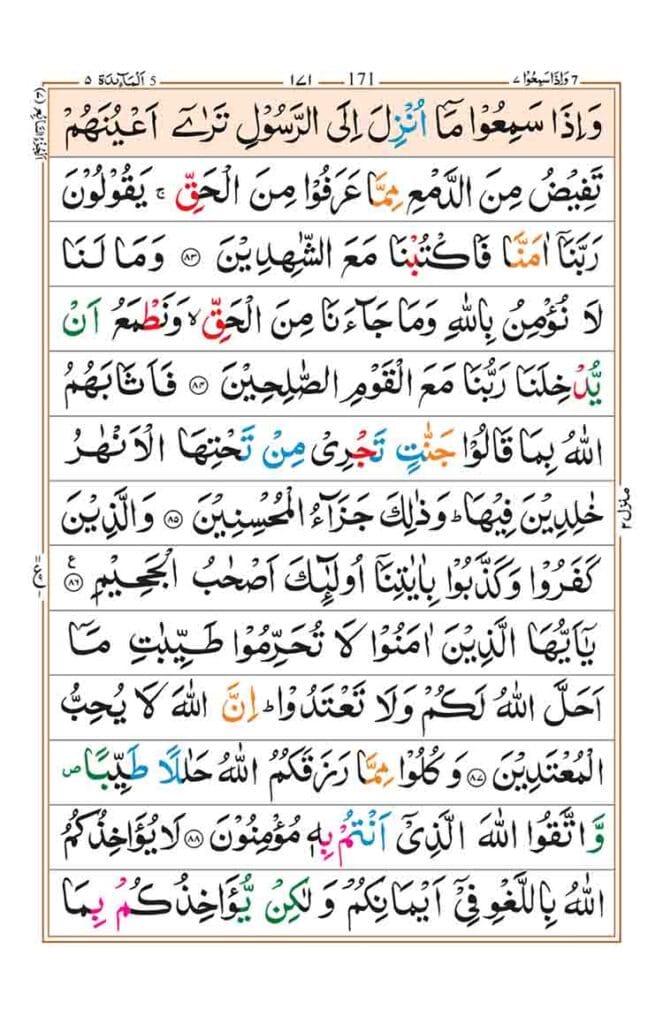 ٧ وَاِذَا سَمِعُوْا 7 171 ١٧١ 5 اَلْمَآئِدَة ٥
وَاِذَا سَمِعُوْا مَاۤ اُنْزِلَ اِلَى الرَّسُوْلِ تَرٰۤى اَعْيُنَهُمْ
تَفِيْضُ مِنَ الدَّمْعِ مِمَّا عَرَفُوْا مِنَ الْحَقِّ ۚ يَقُوْلُوْنَ
رَبَّنَاۤ اٰمَنَّا فَاكْتُبْنَا مَعَ الشّٰهِدِيْنَ ﴿۸۳﴾ وَمَا لَنَا
لَا نُؤْمِنُ بِاللّٰهِ وَمَا جَآءَنَا مِنَ الْحَقِّ ۙ وَنَطْمَعُ اَنْ
يُّدْخِلَنَا رَبُّنَا مَعَ الْقَوْمِ الصّٰلِحِيْنَ ﴿۸۴﴾ فَاَثَابَهُمُ
اللّٰهُ بِمَا قَالُوْا جَنّٰتٍ تَجْرِىْ مِنْ تَحْتِهَا الْاَنْهٰرُ
خٰلِدِيْنَ فِيْهَا ؕ وَذٰلِكَ جَزَآءُ الْمُحْسِنِيْنَ ﴿۸۵﴾ وَالَّذِيْنَ
كَفَرُوْا وَكَذَّبُوْا بِاٰيٰتِنَاۤ اُولٰٓئِكَ اَصْحٰبُ الْجَحِيْمِ ﴿۸۶﴾ ع
يٰۤاَيُّهَا الَّذِيْنَ اٰمَنُوْا لَا تُحَرِّمُوْا طَيِّبٰتِ مَاۤ
اَحَلَّ اللّٰهُ لَكُمْ وَلَا تَعْتَدُوْا ؕ اِنَّ اللّٰهَ لَا يُحِبُّ
الْمُعْتَدِيْنَ ﴿۸۷﴾ وَكُلُوْا مِمَّا رَزَقَكُمُ اللّٰهُ حَلٰلًا طَيِّبًا ۖ
وَّاتَّقُوا اللّٰهَ الَّذِىْۤ اَنْتُمْ بِهٖ مُؤْمِنُوْنَ ﴿۸۸﴾ لَا يُؤَاخِذُكُمُ
اللّٰهُ بِاللَّغْوِ فِىْۤ اَيْمَانِكُمْ وَلٰكِنْ يُّؤَاخِذُكُمْ بِمَا
منزل ٢